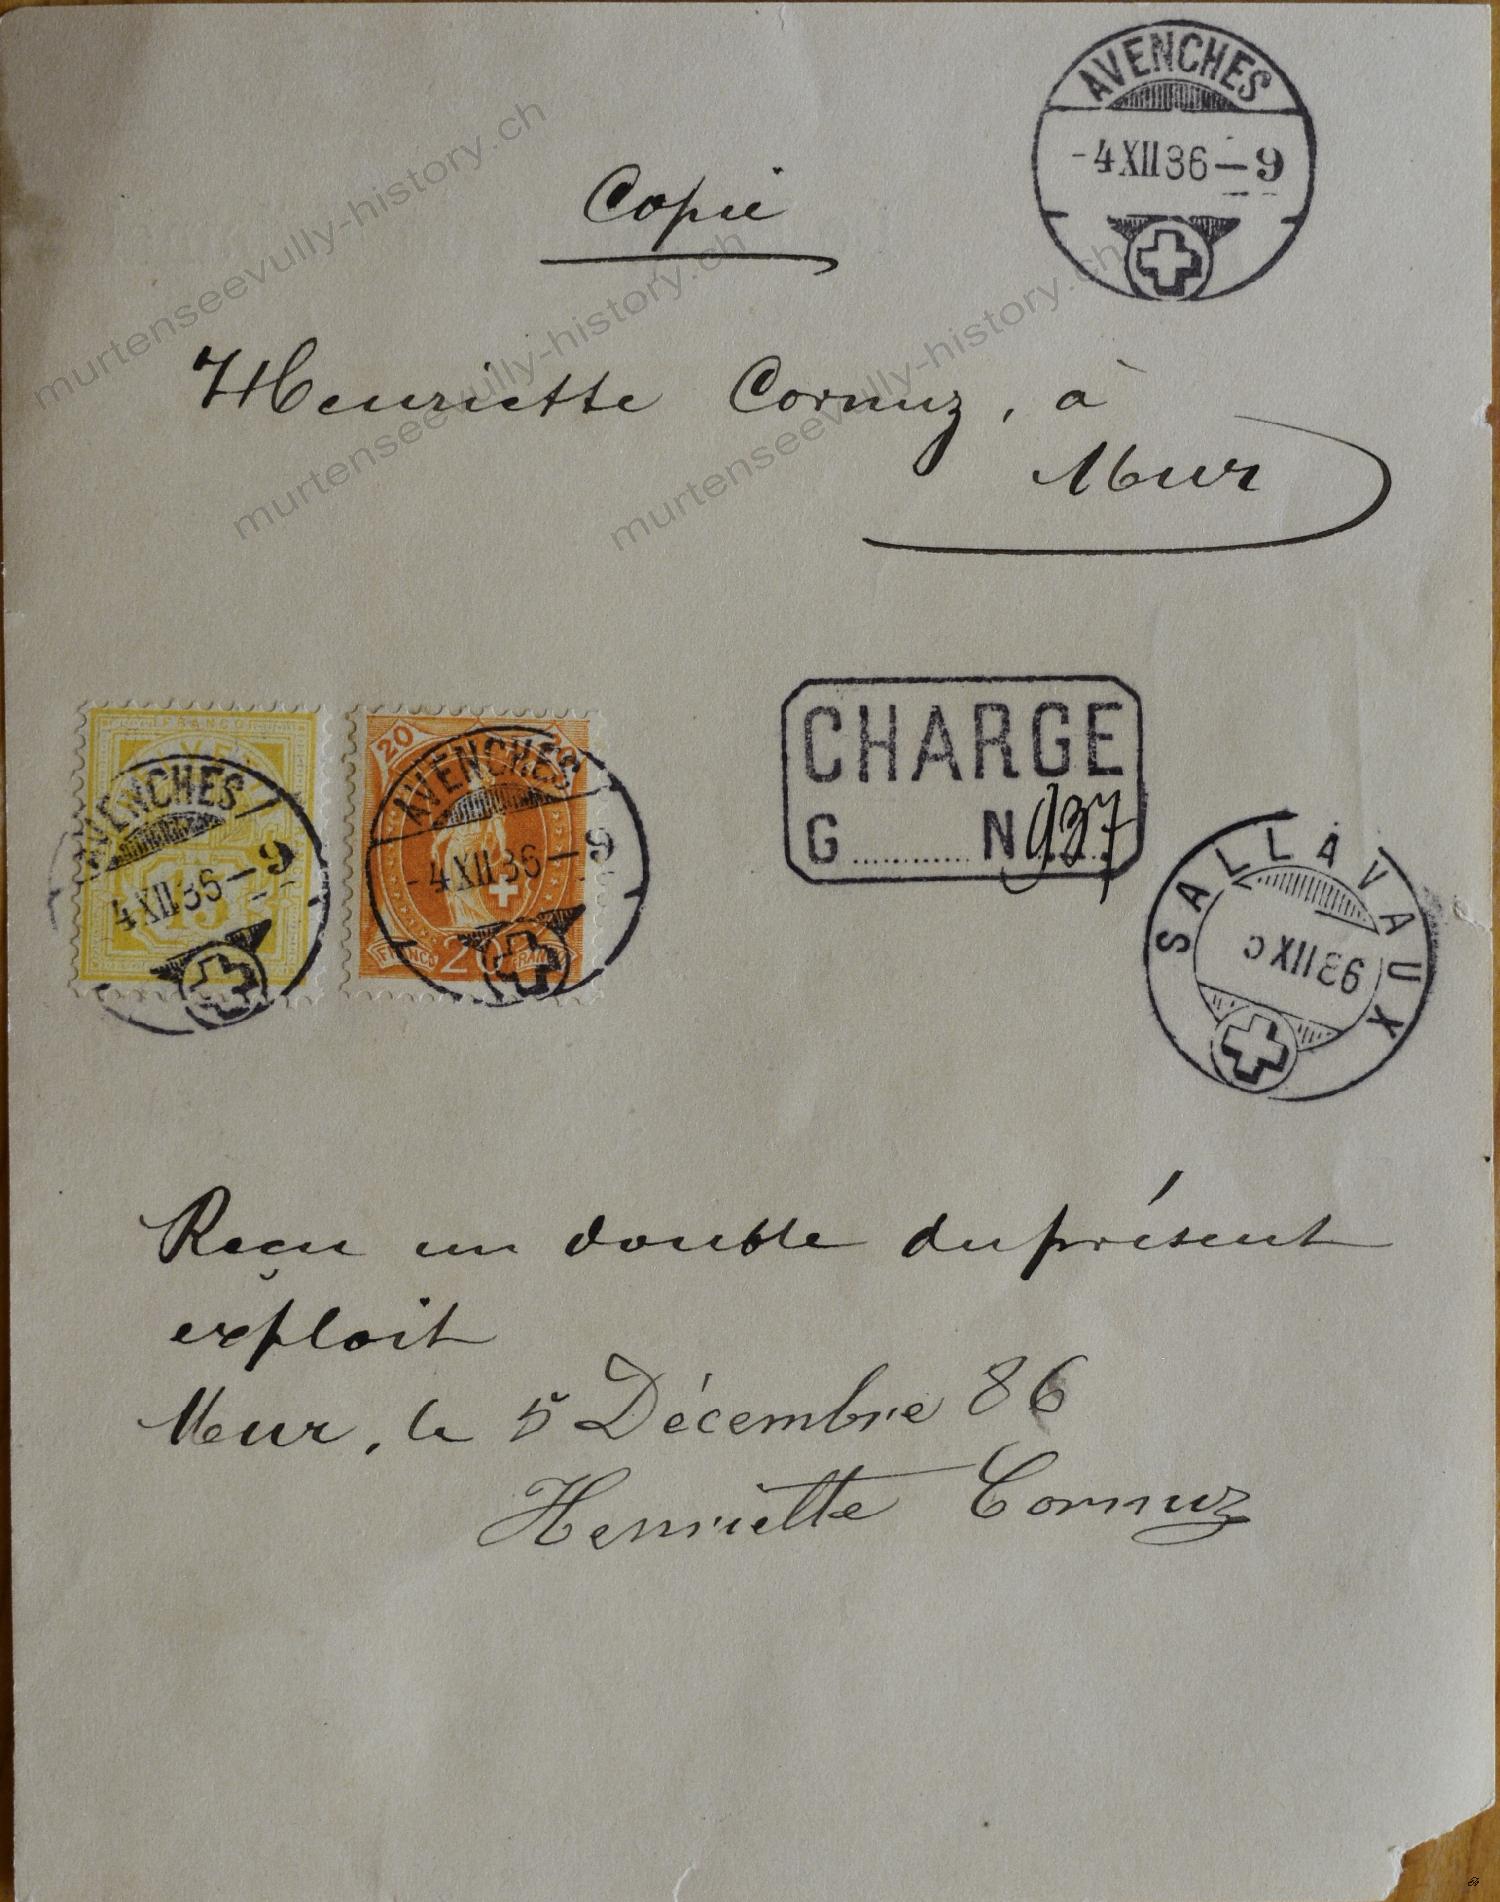 AVENCHES
-4 XII 86 - 9
Copie
Henriette Cornuz, à
Mur
FRANCO
AVENCHES
4 XII 86 - 9
15
20 20
AVENCHES
-4 XII 86 - 9
FRANCO 20 FRANCO
CHARGE
G ............ N 937
SALLAVAUX
XII 86
Reçu un double du présent
exploit
Mur, le 5 Décembre 86
Henriette Cornuz
murtenseevully-history.ch
murtenseevully-history.ch
murtenseevully-history.ch